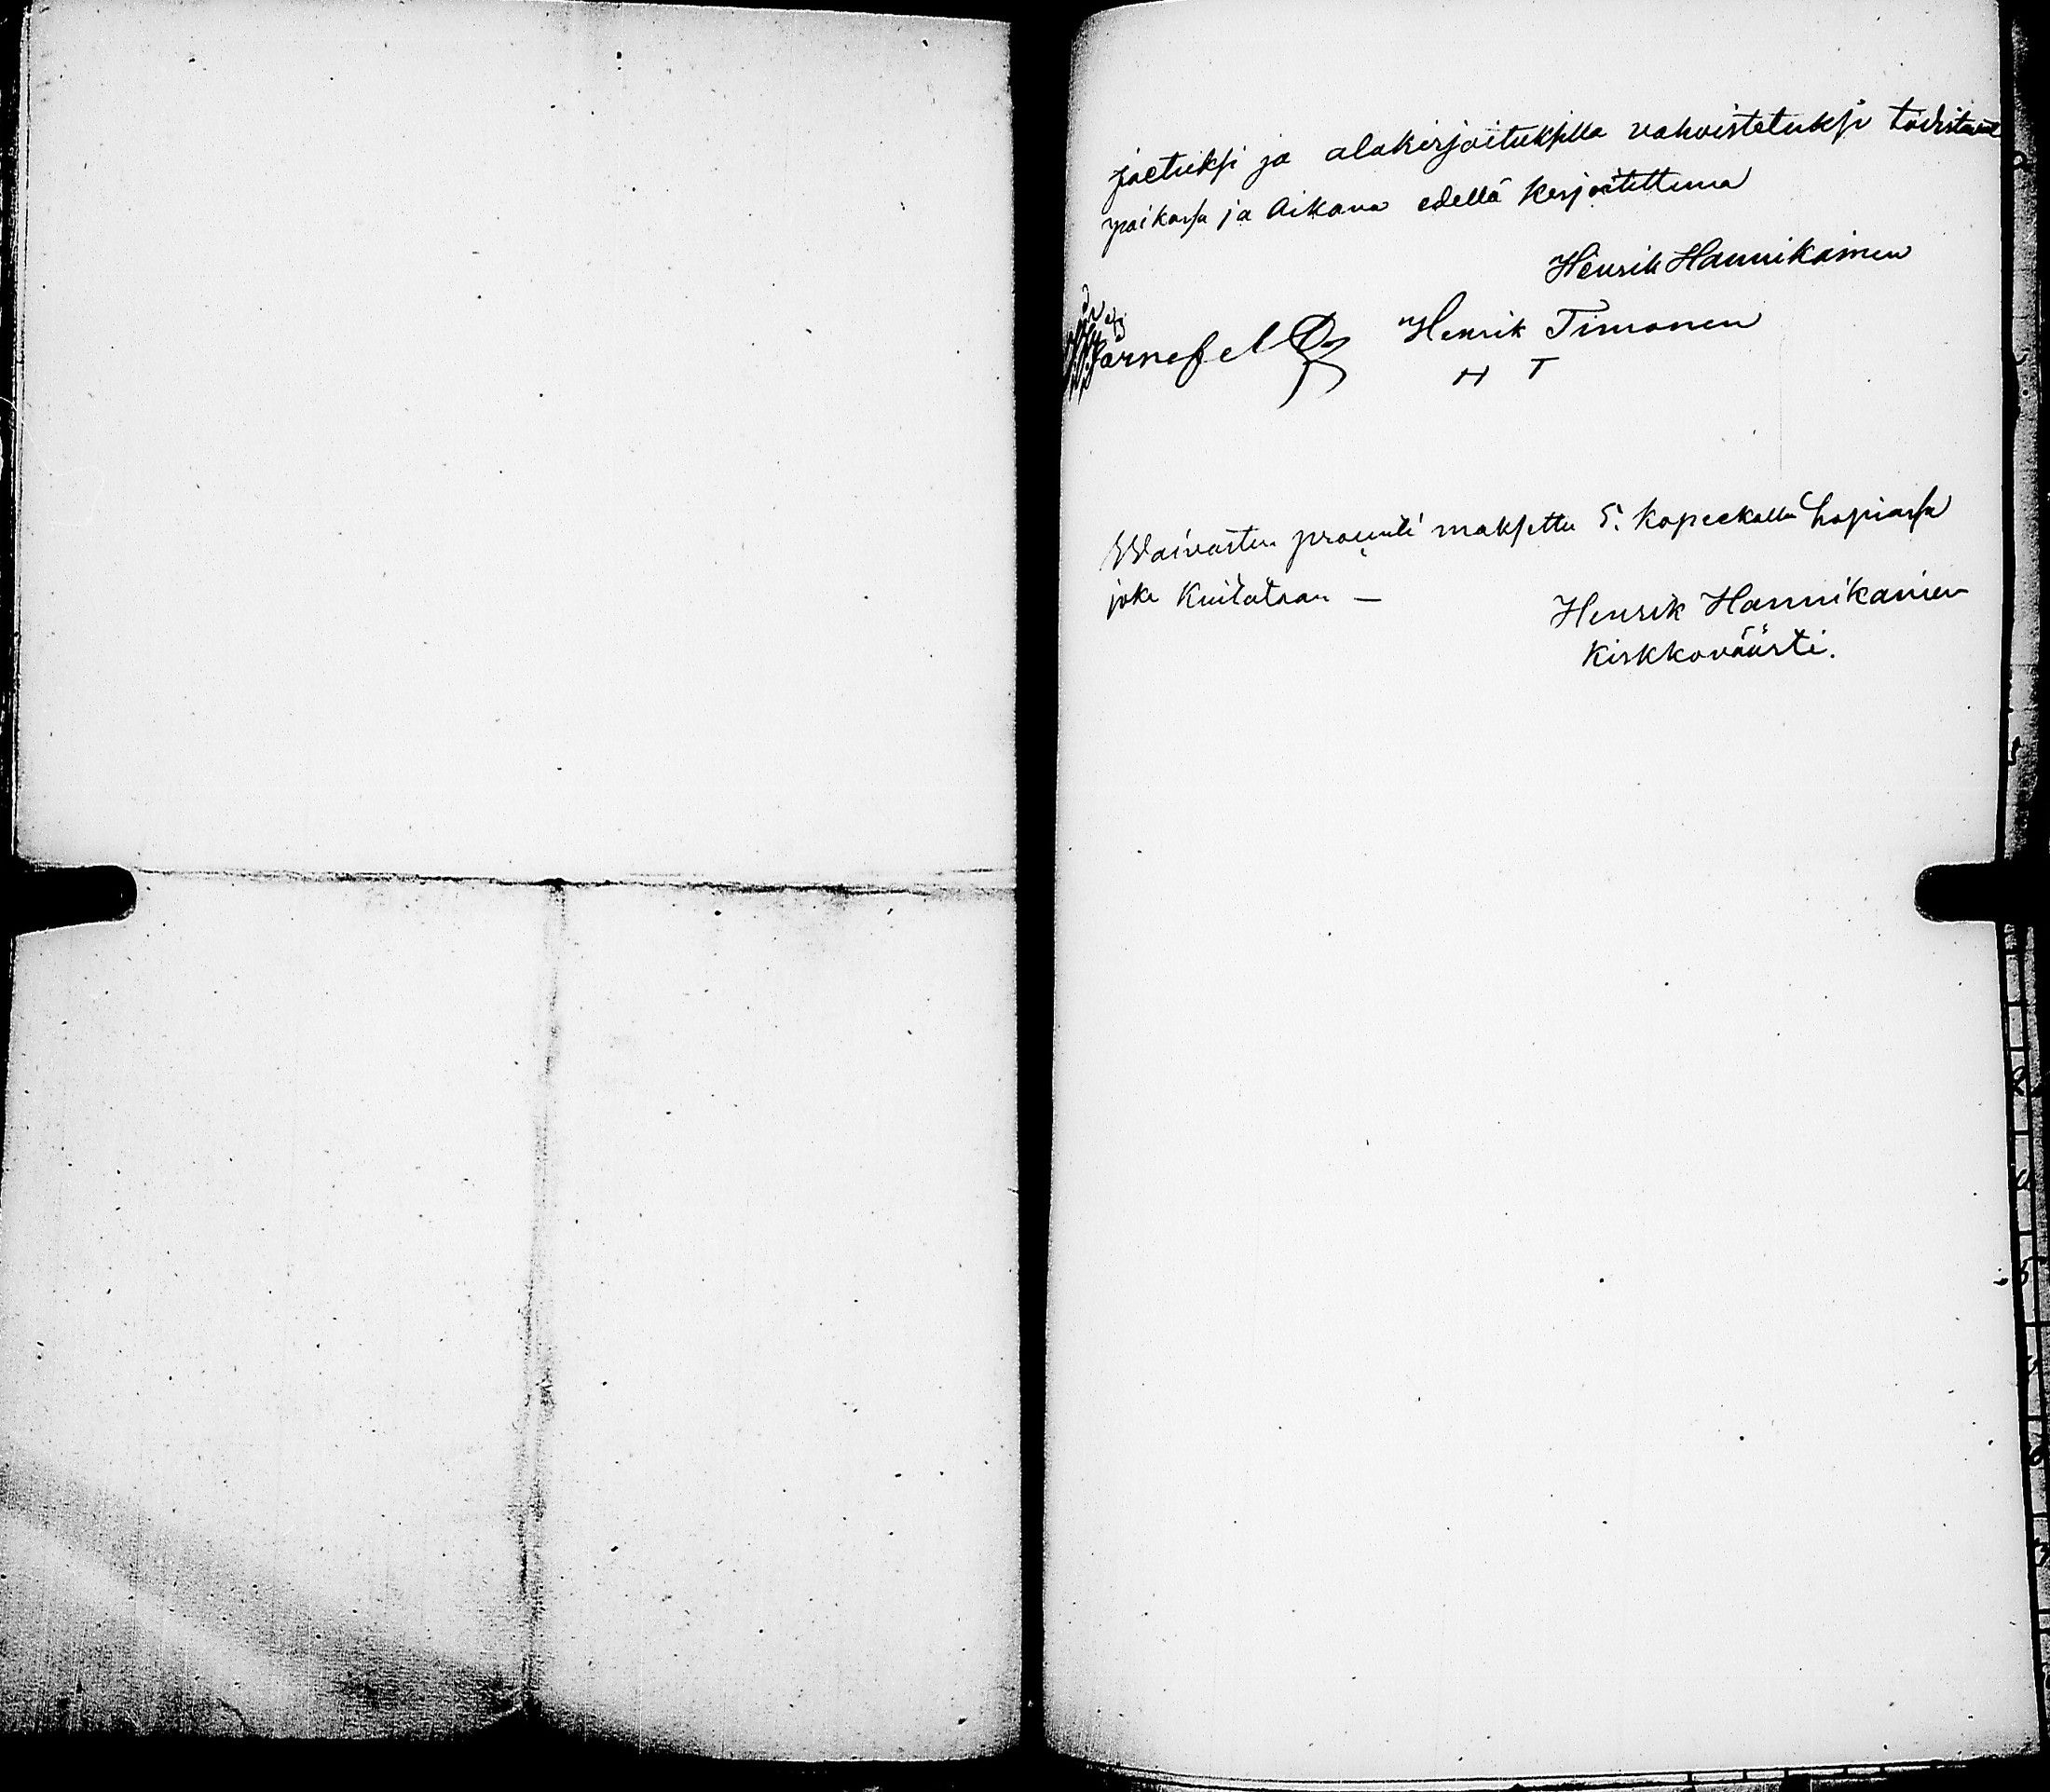 jaetuksi ja alakirjoituksilla vahvistetuksi todistavat
paikassa ja Aikana edellä kirjoitettuna
Henrik Hannikainen
Henrik Timonen
H T
Waivasten prosenti maksettu 5. kopeekalla hopiassa
joka Kuitataan —
Henrik Hannikainen
Kirkkoväärti.